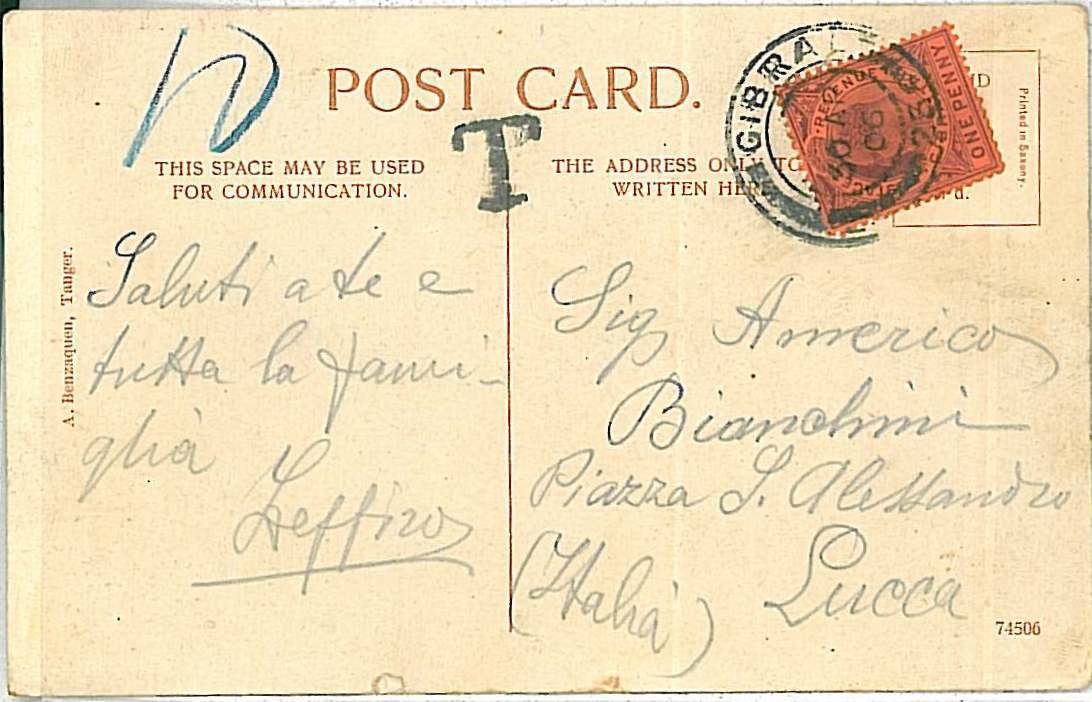 POST CARD.
T
THIS SPACE MAY BE USED
FOR COMMUNICATION.
THE ADDRESS ONLY TO
WRITTEN HERE
GIBRAL
REVENUE
ONE PENNY
06
Printed in Saxony.
A. Benzaquen, Tanger.
Saluti a te e
tutta la fami-
glia
Zeffiro
Sig Americo
Bianchini
Piazza S. Alessandro
Lucca
(Italia)
74506